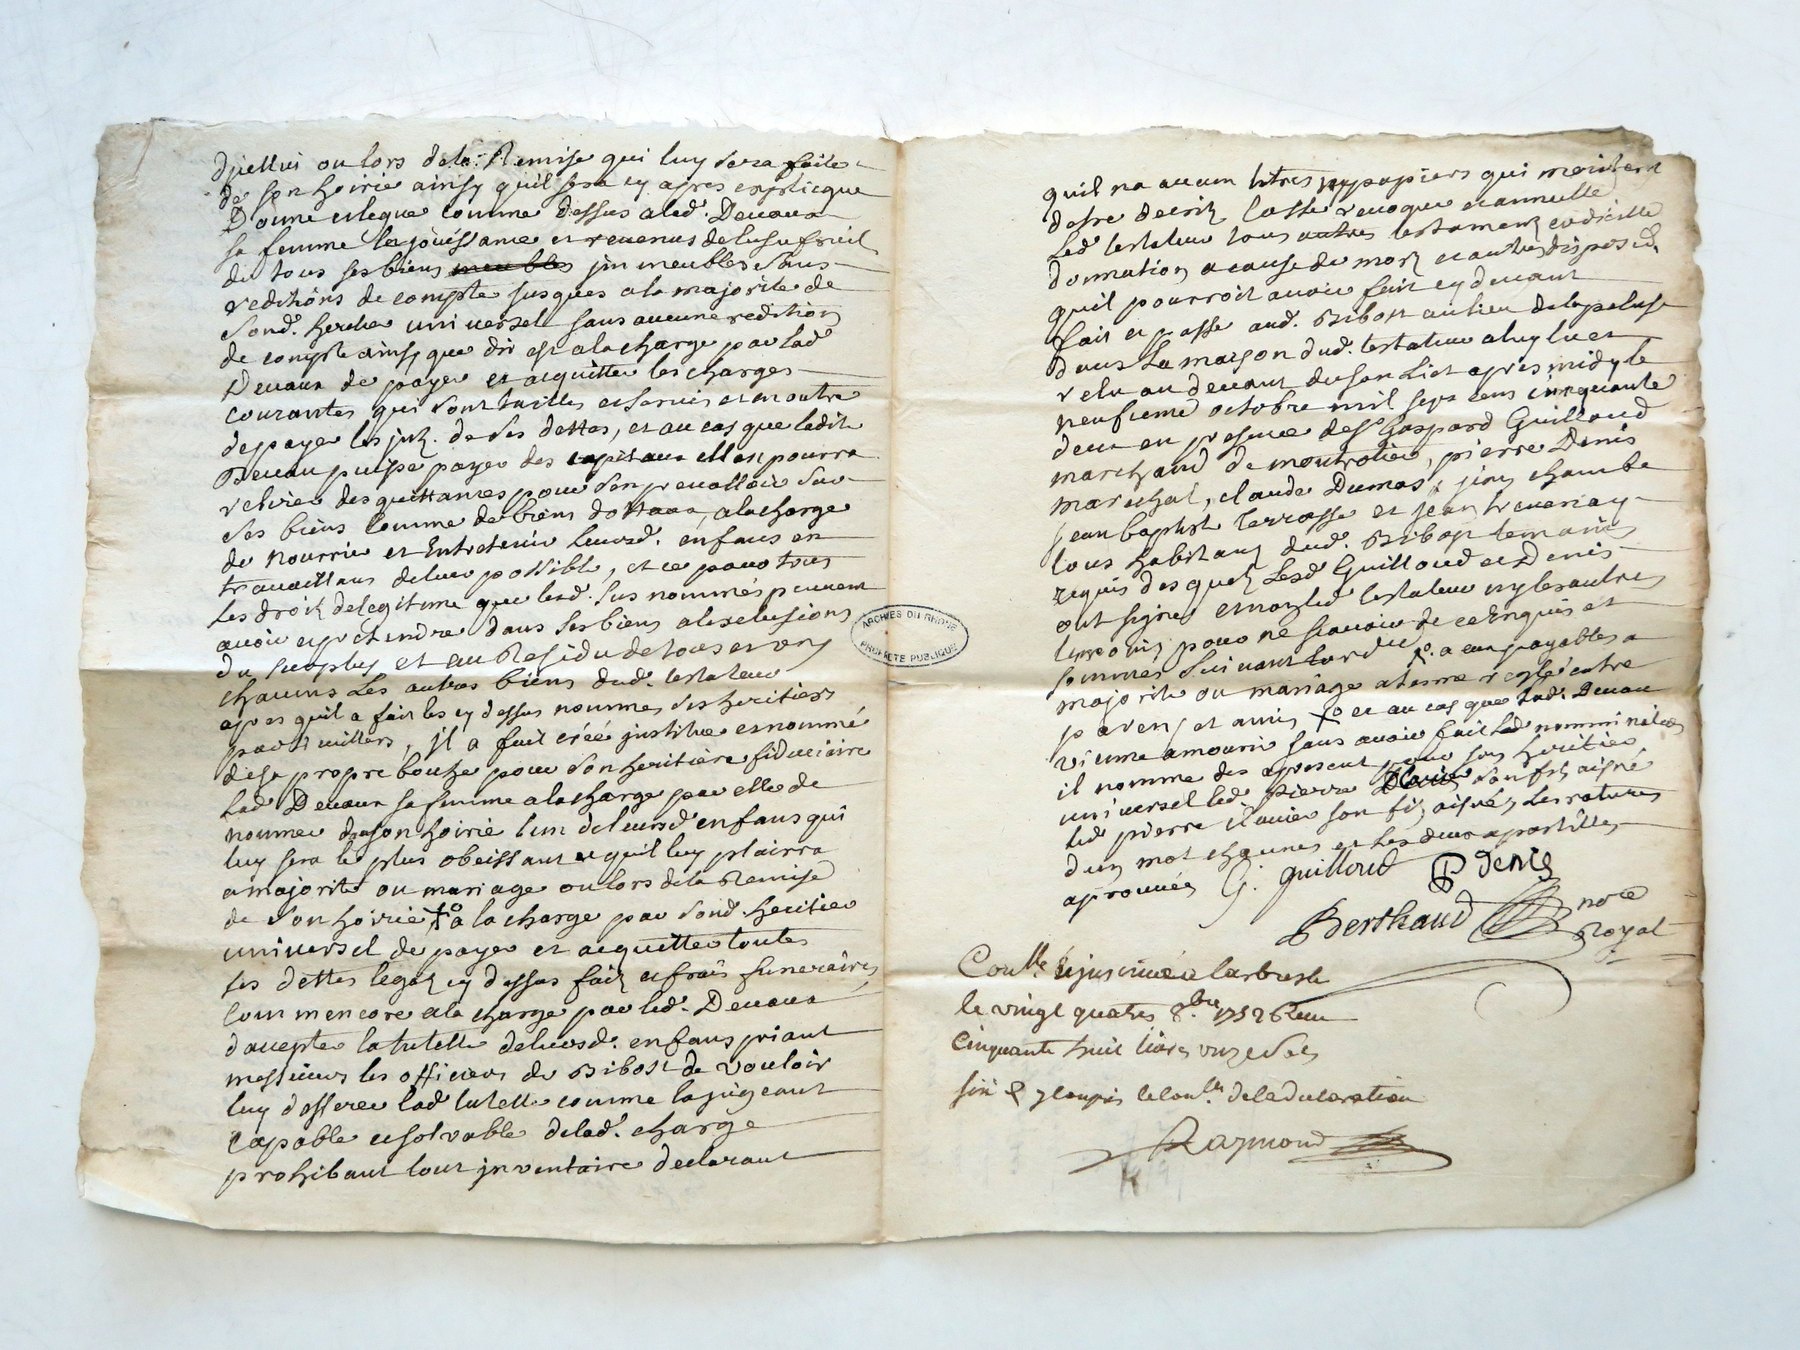 d'icelluy ou lors dela Remise qui luy sera faite
de son hoirie ainsy quil sera cy apres explicque
Donne et legue comme dessus a lad. Devaux
sa femme la joüissance et revenus de lusufruit
de tous ses biens meubles jmmeubles sans
reditions de compte jusques ala majorite de
sond. heritier universel sans aucune redition
de compte ainsy que dit est ala charge par lad
Devaux de payer et acquitter les charges
courantes qui sont tailles et servis et en outre
de payer les jnt. de ses dettes, et au cas que ladite
Devaux puisse payer des capitaux elle en pourra
retirer des quittances pour sen prevalloir sur
ses biens comme de biens dottaux, ala charge
de nourrir et Entretenir leursd. enfans en
travaillans deleur possible, et ce pour tous
les droits de legitime que lesd. sus nommés peuvent
avoir et pretendre dans ses biens al exclusions
du surplus et au Residu de tous et uns
chacuns les autres biens dud. testateur
apres quil a fait les cy dessus nommes ses heritiers
particuilliers, jl a fait créé jnstitue et nommé
de sa propre bouche pour son heritiere fiduciaire
lad Devaux sa femme ala charge par elle de
nommer de son hoirie lun de leursd enfans qui
luy sera le plus obeissant et quil luy plairra
a majorite ou mariage ou lors dela Remise
de son hoirie xo a la charge par sond. heritier
universel de payer et acquitter toutes
ses dettes legats cy dessus faits et frais funeraires
comm encore ala charge par lad. Devaux
daccepter la tutelle de leursd. enfans priant
messieurs les officiers de Ribost de vouloir
luy defferer lad tutelle comme la jugeant
capable et solvable delad. charge
prohibant tout jnventaire declarant
quil na aucun titres ny papiers qui meritent
destre decrits casse revoque et annulle
led testateur tous autres testaments codicille
donnation a cause de mort et autres disposi.
quil pourroit avoir fait cy devant
fait et passe aud. Ribost au lieu de la peluse
dans la maison dud. testateur a luy lu et
relu au devant de son lict apres midy le
neufieme octobre mil sept cens cinquante
deux en presence de sr Gaspard Guilloud
marchand de montrotier, pierre Denis
marechal, claude Dumas, jean chambe
jean baptiste Terrasse et jean trevenay
tous habitans dud. Ribost temoins
requis desquels lesd Guilloud et Denis
ont signe et non led testateur ny les autres
temoins pour ne scavoir de ce Enquis et
sommes suivant lordce xo. a eux payables a
majorite ou mariage a terme regle entre
parens et amis xo et au cas que lad. Devaux
vienne a mourir sans avoir fait lad nommination
il nomme des apresent pour son heritier
universel led. pierre son fils aisné
led pierre son fils aisné, les ratures
dun mot chacunes et les deux apostilles
aprouvées G. guilloud P Denis
Berthaud nore
Royal
Conlle & jnsinué a larbresle
le vingt quatre 8.bre 1752 Recu
Cinquante huit livres onze sols
six d y compris le conle. de la declaration
Raymond
ARCHIVES DU RHONE
PROPRIETE PUBLIQUE